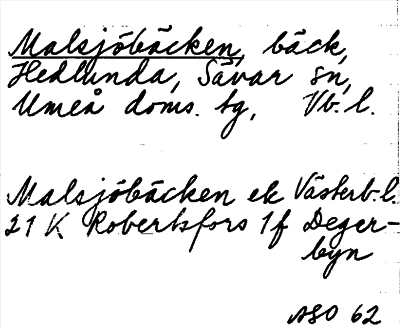 Malsjöbäcken, bäck,
Hedlunda, Sävar sn,
Umeå doms. tg, Vb. l.
Malsjöbäcken ek Västerb. l.
21 K Robertsfors 1 f Deger-
byn
ASO 62